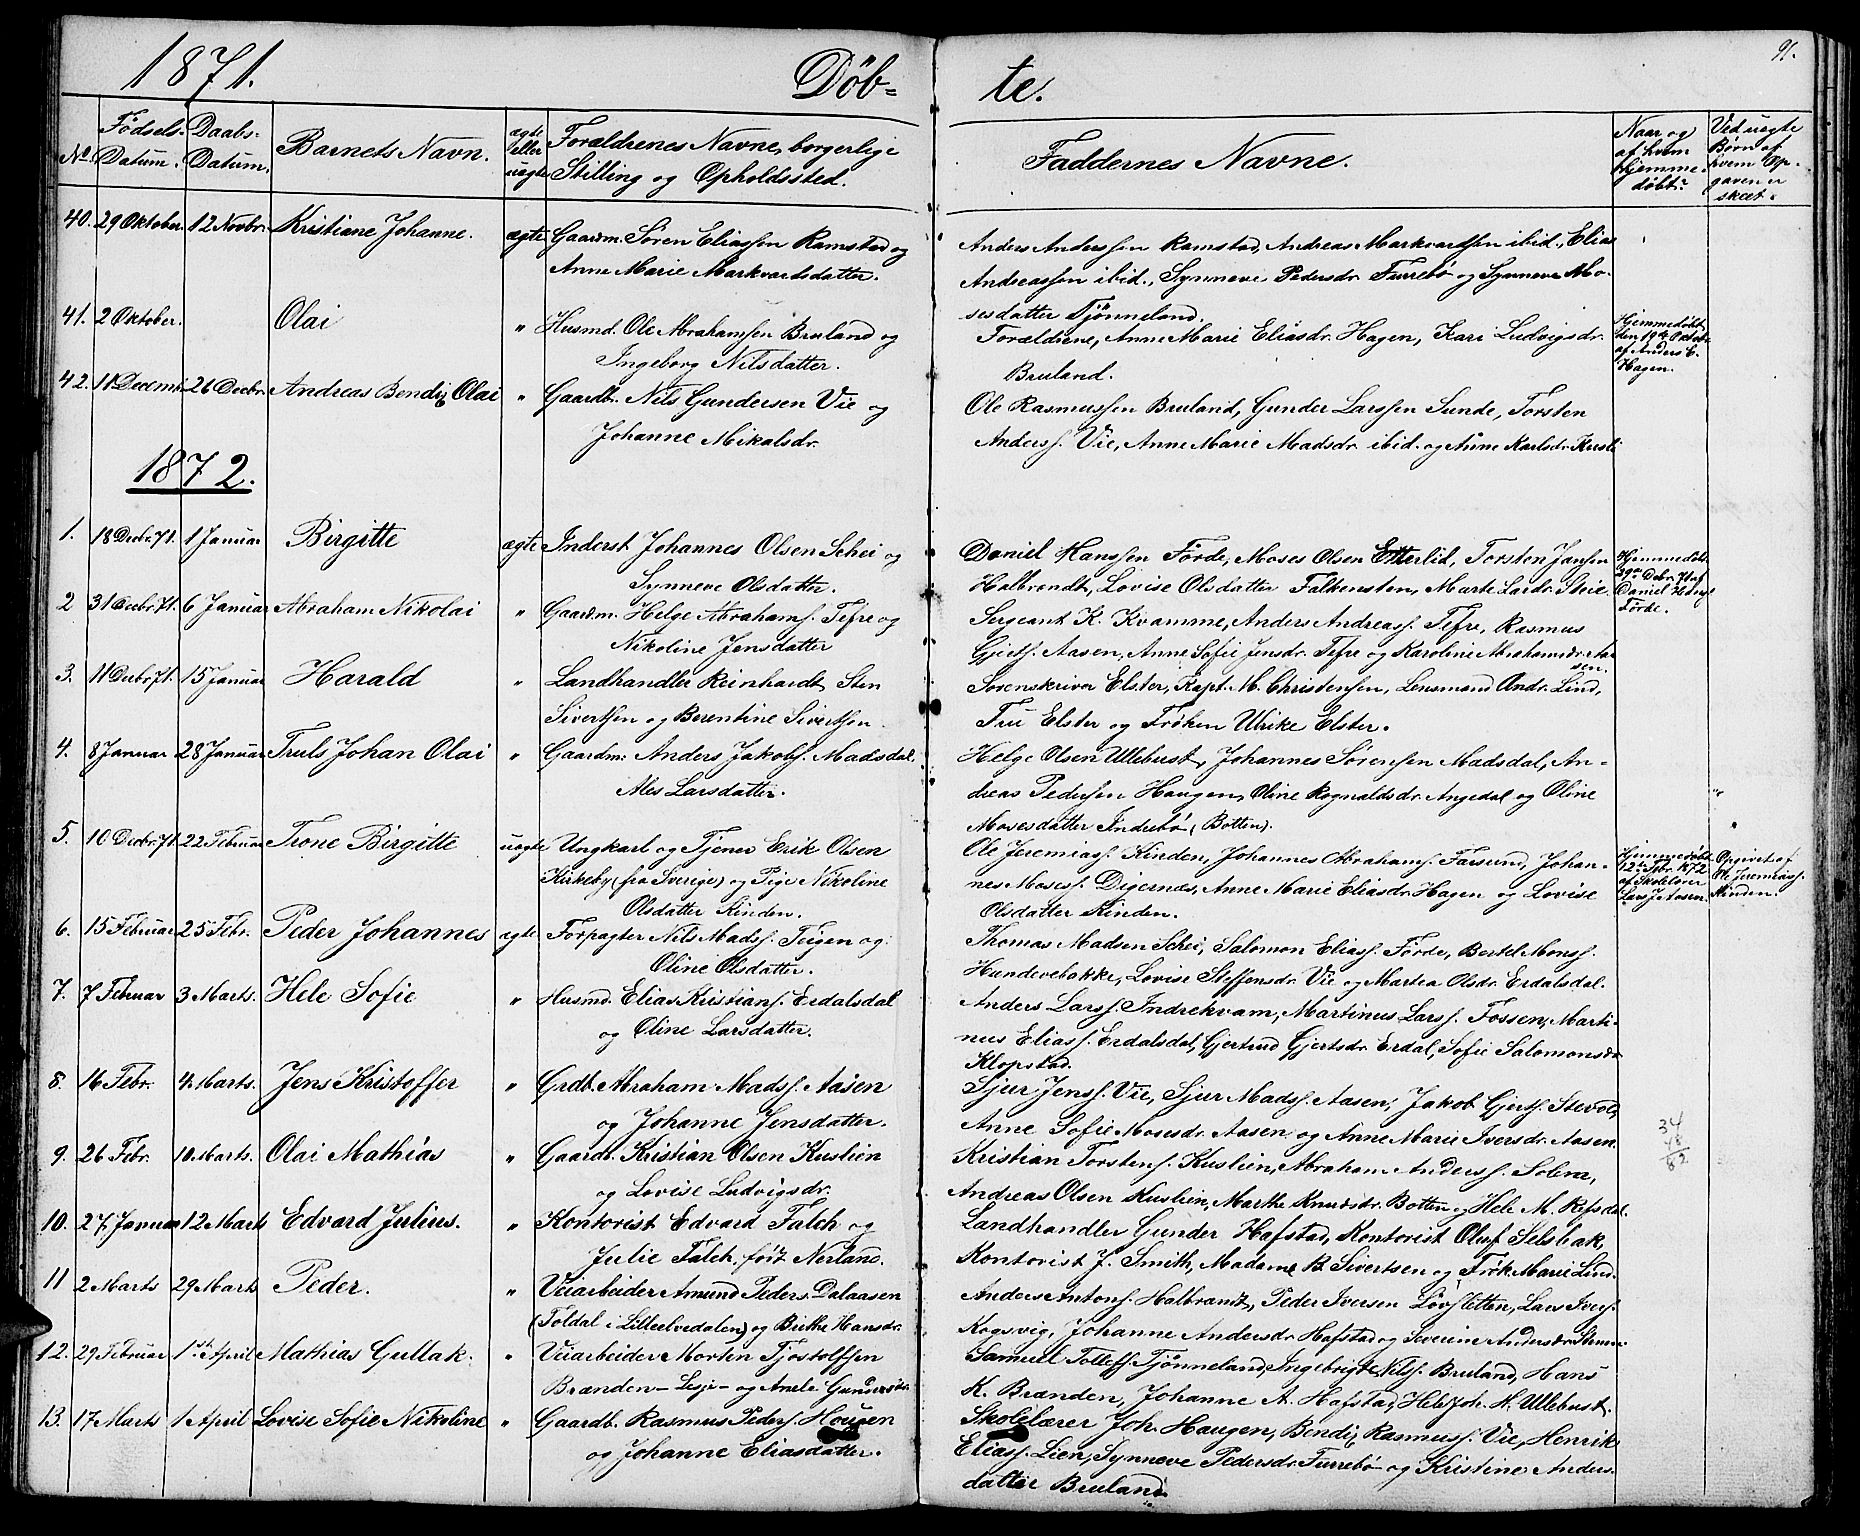 1871. Döb- te. 91.
No. Fødsels-Datum. Daabs-Datum. Barnets Navn. ægte eller uægte Forældrenes Navne, borgerlige Stilling og Opholdssted. Faddernes Navne. Naar og af hvem hjemmedøbt? Ved uægte Børn af hvem Opgaven er skeet.
40. 29 Oktober. 12 Novbr. Kristiane Johanne. ægte Gaardm. Sören Eliassen Ramstad og
Anne Marie Markvardsdatter.
Anders Anderssen Ramstad, Andreas Markvartsen ibid., Elias
Andreassen ibid., Synneve Pedersdr. Furrebö og Synneve Mo-
sesdatter Tjönneland.
41. 2 Oktober. Olai " Husmd. Ole Abrahamsen Bruland og
Ingeborg Nilsdatter.
Forældrene, Anne Marie Eliasdr. Hagen, Kari Ludvigsdr.
Bruland.
Hjemmedöbt
den 19de Oktob.
af Anders E.
Hagen.
42. 11 Decemb. 26 Decbr. Andreas Bendix Olai " Gaardb. Nils Gundersen Vie og
Johanne Mikalsdr.
Ole Rasmussen Bruland, Gunder Larssen Sunde, Torsten
Anderss. Vie, Anne Marie Madsdr. ibid. og Anne Karlsdr.
1872.
1. 18 Decbr. 71. 1 Januar Birgitte ægte Inderst Johannes Olsen Schei og
Synneve Olsdatter.
Daniel Hanssen Förde, Moses Olsen Etterlid, Torsten Jansen
Halbrendt, Lovise Olsdatter Falkensten, Marte Larsdr. Steie.
Hjemmedöbt
Decbr. 71 af
Daniel
Förde.
2 31 Decbr. 71. 6 Januar Abraham Nikolai " Gaardm. Helge Abrahams. Tefre og
Nikoline Jensdatter
Sergeant K. Kvamme, Anders Andreass. Tefre, Rasmus
Gjerts. Aasen, Anne Sofie Jensdr. Tefre og Karoline Abrahamsdr. Aa-
sen.
3. 11 Decbr. 71. 15 Januar Harald " Landhandler Reinhardt Sten
Sivertsen og Berentine Sivertsen.
Sorenskriver Elster, Kapt. M. Christensen, Lensmand Andr. Lind,
Fru Elster og Fröken Ulrike Elster.
4. 8 Januar 28 Januar Truls Johan Olai " Gaardm. Anders Jakobs. Madsdal
Ales Larsdatter.
Helge Olsen Ullebust, Johannes Sörensen Madsdal, An-
dreas Pedersen Haugen, Oline Rognaldsdr. Angedal og Oline
Mosesdatter Indrebö (Botten).
"
"
5. 10 Decbr. 71. 22 Februar Trone Birgitte uægte Ungkarl og Tjener Erik Olsen
Kirkeby (fra Sverige) og Pige Nikoline
Olsdatter Kinden.
Ole Jeremiass. Kinden, Johannes Abrahams. Farsund, Johan-
nes Moses. Digernæs, Anne Marie Eliasdr. Hagen og Lovise
Olsdatter Kinden.
Hjemmedöbt
12te Febr. 1872
af Skolelærer
Lars J. Aasen.
Opgivet af
Ole Jeremiass.
Kinden.
6. 15 Februar 25 Febr. Peder Johannes ægte Forpagter Nils Madss. Teigen og
Oline Olsdatter.
Thomas Madsen Schei, Salomon Eliass. Förde, Bertel Monss.
Hundevebakke, Lovise Steffensdr. Vie og Martea Olsdr. Erdalsdal.
7. 7 Februar 3 Marts. Hele Sofie " Husmd. Elias Kristians. Erdalsdal
og Oline Larsdatter.
Anders Larss. Indrekvam, Martinus Larss. Fossen, Marti-
nus Eliass. Erdalsdal, Gjertrud Gjertsdr. Erdal, Sofie Salomonsdr.
Klopstad.
8. 16 Febr. 4 Marts. Jens Kristoffer " Grdb. Abraham Madss. Aasen
og Johanne Jensdatter.
Sjur Jenss. Vie, Sjur Madss. Aasen, Jakob Gjerts. Stevol,
Anne Sofie Mosesdr. Aasen og Anne Marie Iversdr. Aasen.
34
48
82
9. 26 Febr. 10 Marts. Olai Mathias " Gaardb. Kristian Olsen Kuslien
og Lovise Ludvigsdr.
Kristian Torstens. Kuslien, Abraham Anderss. Solera,
Andreas Olsen Kuslien, Marthe Knudsdr. Botten og Hele M. Refsdal.
10. 27 Januar 12 Marts Edvard Julius. " Kontorist Edvard Falch og
Julie Falch, född Nerland.
Landhandler Gunder Hafstad, Kontorist Oluf Selsbak,
Kontorist J. Smith, Madame B. Sivertsen og Frök. Marie Lind.
11 2 Marts 29 Marts Peder. " Veiarbeider Amund Peders. Dalaasen
(Foldal i Lilleelvedalen) og Birthe Hansdr.
Anders Antons. Halbrandt, Peder Iversen Lövsletten, Lars Ivers.
Kogsvig, Johanne Andersdr. Hafstad og Severine Andersdr.
12. 29 Februar 1ste April Mathias Gullak. " Veiarbeider Morten Tjostolfsen
Brænden - Lesje - og Anele Gundersdr.
Samuel Tollefs. Tjönneland, Ingebrigt Nils. Bruland, Hans
K. Brænden, Johanne A. Hafstad, Hele Joh. H. Ullebust.
13. 17 Marts 1 April Lovise Sofie Nikoline " Gaardb. Rasmus Peders. Hougen
og Johanne Eliasdatter.
Skolelærer Joh. Haugen, Bendix Rasmuss. Vie, Henrik
Eliass. Lien, Synneve Pedersdr. Furrebö og Kristine Anders-
datter Bruland.